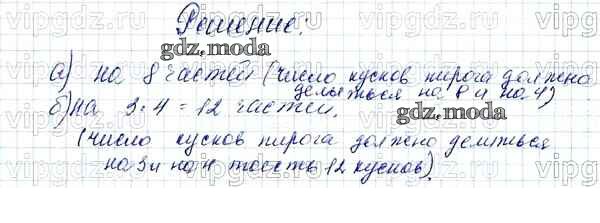 Решение.
gdz.moda
а) на 8 частей (число кусков пирога должно
делиться на 8 и на 4)
б) на 3·4 = 12 частей.
gdz.moda
(число кусков пирога должно делиться
на 3 и на 4 тоесть 12 кусков).